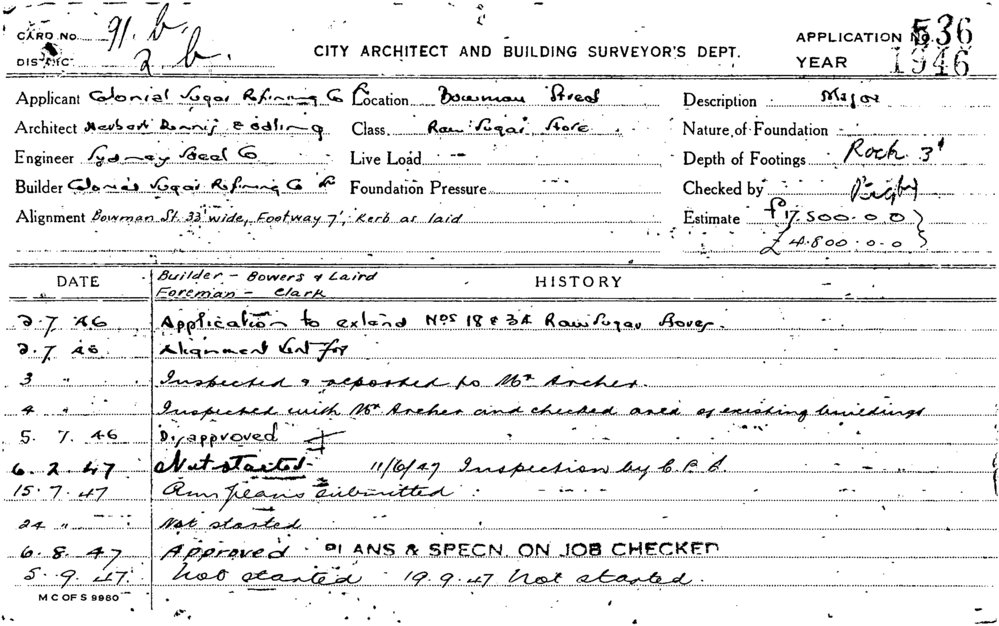 CARD No. 91. b. APPLICATION No. 536
DISTRICT 2 b. CITY ARCHITECT AND BUILDING SURVEYOR'S DEPT. YEAR 1946
Applicant Colonial Sugar Refining Co Location Bowman Street Description Major
Architect Herbert Dennis Class Raw Sugar Store Nature of Foundation
Engineer Sydney Steel Co Live Load - Depth of Footings Rock 3'
Builder Colonial Sugar Refining Co Foundation Pressure Checked by
Alignment Bowman St. 33' wide, Footway 7', Kerb as laid Estimate £17,500.0.0
£4.800.0.0
DATE Builder - Bowers & Laird HISTORY
Foreman - Clark
2.7.46 Application to extend Nos 18 & 3A Raw Sugar Stores.
2.7.46 Alignment sent for
3 " Inspected & reported to Mr Archer.
4 " Inspected with Mr Archer and checked area of existing buildings
5.7.46 Disapproved
6.2.47 Not started 11/6/47 Inspection by
15.7.47 plans submitted
24 " Not started
6.8.47 Approved PLANS & SPECN. ON JOB CHECKED
5.9.47. Not started 19.9.47 Not started.
M C OF S 9980